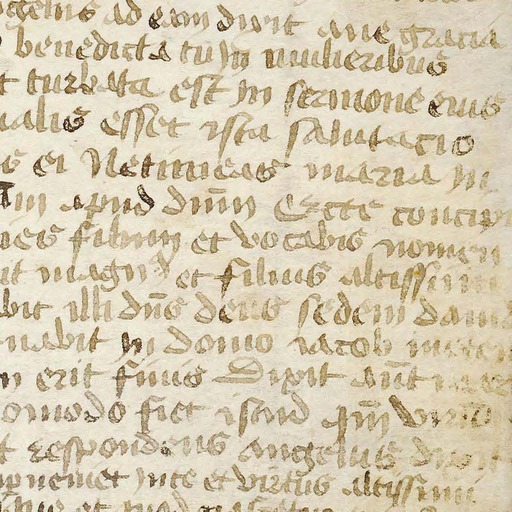 angelus ad eam dixit aue gracia
benedicta tu in mulieribus
t turbata est in sermone eius
ualis esset ista salutacio
s ei Ne timeas maria in
am apud dn̄m Ecce concipi
ies filium et vocabis nomen
it magn9 et filius altissimi
bit illi dn̄s deus sedem dauid
nabit in domo iacob in eter
n erit finis Dixit aūt mar
omodo fiet istud qm̄ viru
t respondens angelus dixit
perueniet in te et virtus altissimi